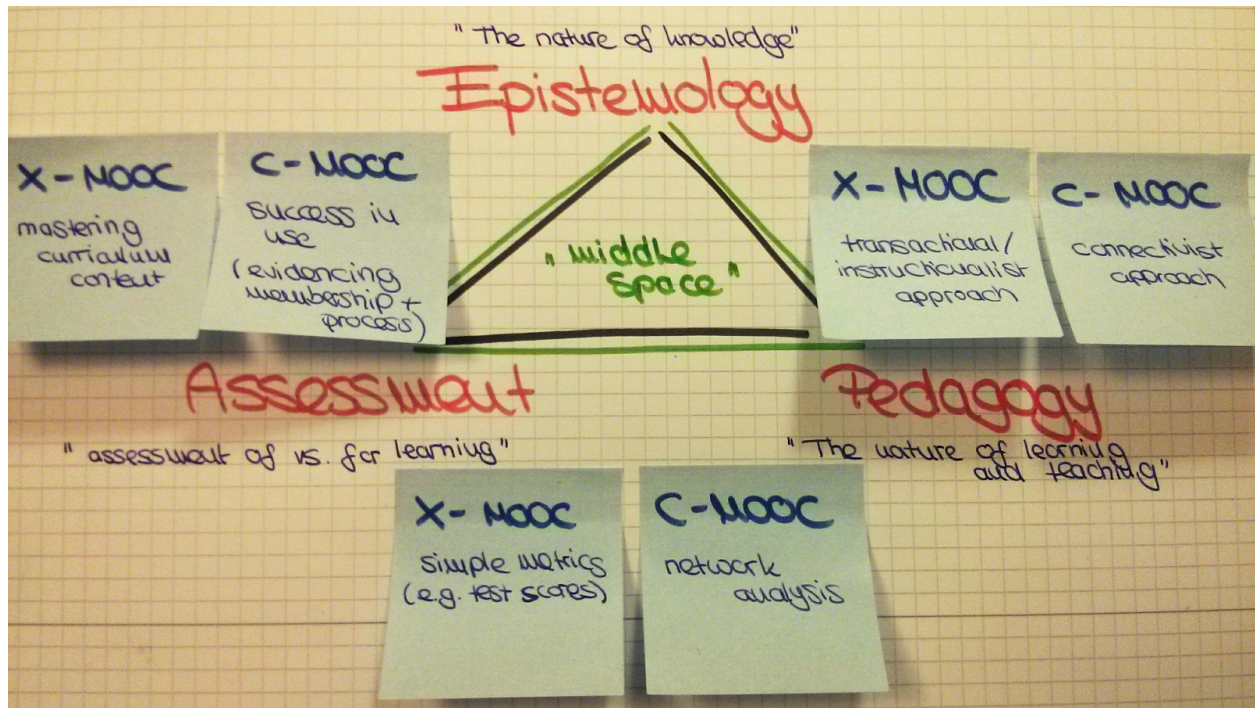 "The nature of knowledge"
Epistemology
X-MOOC
mastering
curriculum
content
C-MOOC
success in
use
(evidencing
membership +
process)
"middle
space"
X-MOOC
transactional/
instructionalist
approach
C-MOOC
connectivist
approach
Assessment
"assessment of vs. for learning"
Pedagogy
"The nature of learning
and teaching"
X-MOOC
simple metrics
(e.g. test scores)
C-MOOC
network
analysis